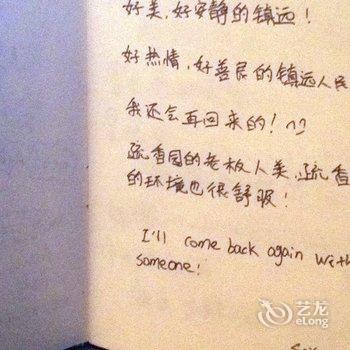 好美,好安静的镇远!
好热情,好善良的镇远人民
我还会再回来的! ^^
疏香园的老板人美,疏香
的环境也很舒服!
I'll come back again With
someone!
艺龙
eLong